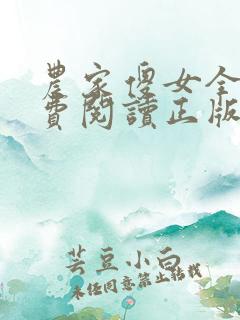 農家傻女全
費閱讀正版
芸豆小白
未经同意禁止转载